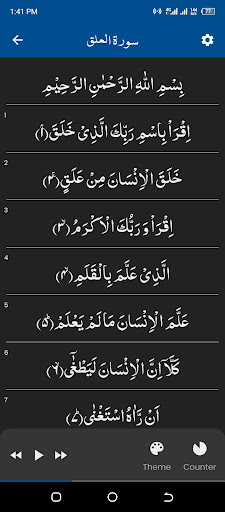 1:41 PM
سورة العلق
بِسْمِ اللهِ الرَّحْمٰنِ الرَّحِيْمِ
1
اِقْرَاْ بِاسْمِ رَبِّكَ الَّذِىْ خَلَقَ ﴿۱﴾
2
خَلَقَ الْاِنْسَانَ مِنْ عَلَقٍ ﴿۲﴾
3
اِقْرَاْ وَرَبُّكَ الْاَكْرَمُ ﴿۳﴾
4
الَّذِىْ عَلَّمَ بِالْقَلَمِ ﴿۴﴾
5
عَلَّمَ الْاِنْسَانَ مَا لَمْ يَعْلَمْ ﴿۵﴾
6
كَلَّاۤ اِنَّ الْاِنْسَانَ لَيَطْغٰٓى ﴿۶﴾
7
اَنْ رَّاٰهُ اسْتَغْنٰى ﴿۷﴾
Theme Counter